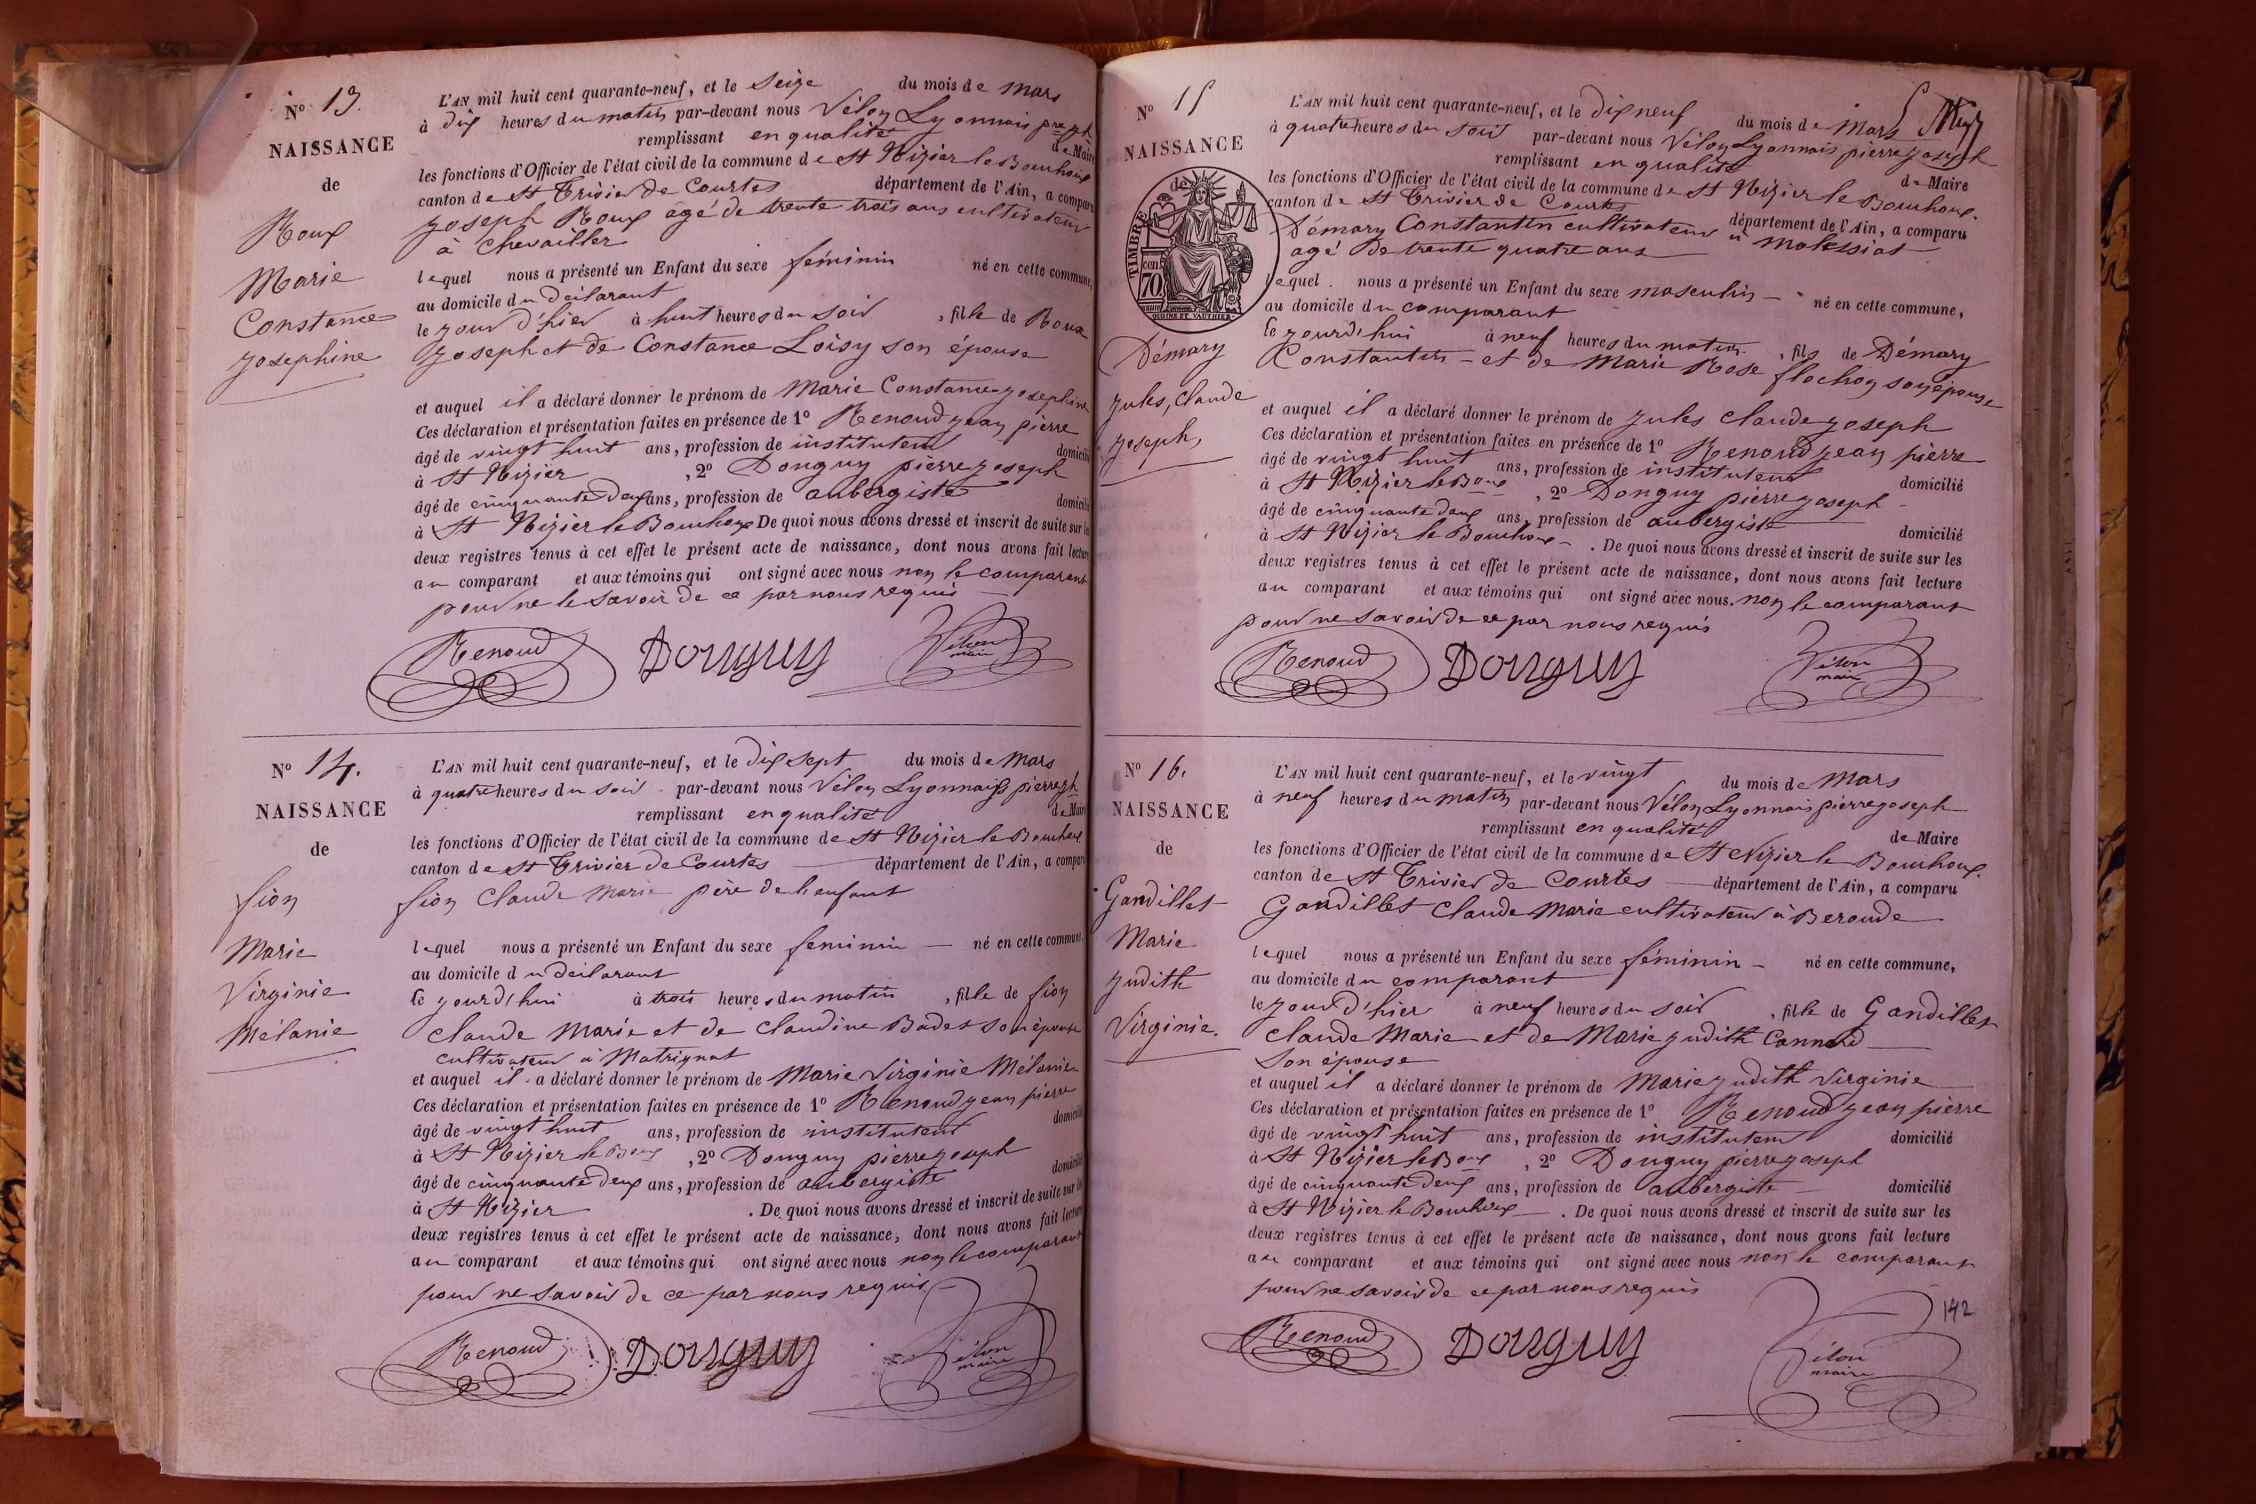 Nº 13.
NAISSANCE
de
Roux
Marie
Constance
josephine
L'AN mil huit cent quarante-neuf, et le seize du mois de mars
à dix heures du matin par-devant nous Vélon Lyonnais pre jph
remplissant en qualité de Maire
les fonctions d'Officier de l'état civil de la commune de St Nizier le Bouchoux
canton de St Trivier de Courtes département de l'Ain, a comparu
joseph Roux âgé de trente trois ans cultivateur
à Chevailler
lequel nous a présenté un Enfant du sexe féminin né en cette commune,
au domicile du déclarant
le jour d'hier à huit heures du soir, fille de Roux
joseph et de Constance Loisy son épouse
et auquel il a déclaré donner le prénom de Marie Constance josephine
Ces déclaration et présentation faites en présence de 1º Renoud jean pierre
âgé de vingt huit ans, profession de instituteur domicilié
à St Nizier, 2º Donguy pierre joseph
âgé de cinquante deux ans, profession de aubergiste domicilié
à St Nizier le Bouchoux De quoi nous avons dressé et inscrit de suite sur les
deux registres tenus à cet effet le présent acte de naissance, dont nous avons fait lecture
au comparant et aux témoins qui ont signé avec nous non le comparant
pour ne le savoir de ce par nous requis
Renoud Donguy Vélon
maire
Nº 14.
NAISSANCE
de
fion
Marie
Virginie
Mélanie
L'AN mil huit cent quarante-neuf, et le dix sept du mois de Mars
à quatre heures du soir par-devant nous Vélon Lyonnais pierre jph
remplissant en qualité de Maire
les fonctions d'Officier de l'état civil de la commune de St Nizier le Bouchoux
canton de St Trivier de Courtes département de l'Ain, a comparu
fion Claude Marie père de l'enfant
lequel nous a présenté un Enfant du sexe feminin né en cette commune
au domicile du déclarant
le jourd'hui à trois heures du matin, fille de fion
Claude Marie et de Claudine Badet son épouse
cultivateur à Matrignat
et auquel il a déclaré donner le prénom de Marie Virginie Mélanie
Ces déclaration et présentation faites en présence de 1º Renoud jean pierre
âgé de vingt huit ans, profession de instituteur domicilié
à St Nizier le Boux, 2º Donguy pierre joseph
âgé de cinquante deux ans, profession de aubergiste domicilié
à St Nizier. De quoi nous avons dressé et inscrit de suite sur les
deux registres tenus à cet effet le présent acte de naissance, dont nous avons fait lecture
au comparant et aux témoins qui ont signé avec nous non le comparant
pour ne savoir de ce par nous requis
Renoud Donguy Vélon
maire
Nº 15
NAISSANCE
de
TIMBRE
cen.
70
Démary
jules, Claude
joseph,
L'AN mil huit cent quarante-neuf, et le dix neuf du mois de Mars
à quatre heures du soir par-devant nous Vélon Lyonnais pierre joseph
remplissant en qualité de Maire
les fonctions d'Officier de l'état civil de la commune de St Nizier le Bouchoux.
canton de St Trivier de Courtes département de l'Ain, a comparu
Démary Constantin cultivateur à Malessiat
agé de trente quatre ans
lequel nous a présenté un Enfant du sexe masculin né en cette commune,
au domicile du comparant
le jourd'hui à neuf heures du matin, fils de Démary
Constantin et de Marie Rose flochon son épouse
et auquel il a déclaré donner le prénom de jules claude joseph
Ces déclaration et présentation faites en présence de 1º Renoud jean pierre
âgé de vingt huit ans, profession de instituteur domicilié
à St Nizier le Boux, 2º Donguy pierre joseph
âgé de cinquante deux ans, profession de aubergiste domicilié
à St Nizier le Bouchoux. De quoi nous avons dressé et inscrit de suite sur les
deux registres tenus à cet effet le présent acte de naissance, dont nous avons fait lecture
au comparant et aux témoins qui ont signé avec nous. non le comparant
pour ne savoir de ce par nous requis
Renoud Donguy Vélon
maire
Nº 16.
NAISSANCE
de
Gandillet
Marie
judith
Virginie.
L'AN mil huit cent quarante-neuf, et le vingt du mois de Mars
à neuf heures du matin par-devant nous Vélon Lyonnais pierre joseph
remplissant en qualité de Maire
les fonctions d'Officier de l'état civil de la commune de St Nizier le Bouchoux.
canton de St Trivier de Courtes département de l'Ain, a comparu
Gandillet Claude Marie cultivateur à Beroude
lequel nous a présenté un Enfant du sexe féminin né en cette commune,
au domicile du comparant
le jour d'hier à neuf heures du soir, fille de Gandillet
Claude Marie et de Marie judith Connord
son épouse
et auquel il a déclaré donner le prénom de Marie judith Virginie
Ces déclaration et présentation faites en présence de 1º Renoud jean pierre
âgé de vingt huit ans, profession de instituteur domicilié
à St Nizier le Boux, 2º Donguy pierre joseph
âgé de cinquante deux ans, profession de aubergiste domicilié
à St Nizier le Bouchoux. De quoi nous avons dressé et inscrit de suite sur les
deux registres tenus à cet effet le présent acte de naissance, dont nous avons fait lecture
au comparant et aux témoins qui ont signé avec nous non le comparant
pour ne savoir de ce par nous requis
142
Renoud Donguy Vélon
maire